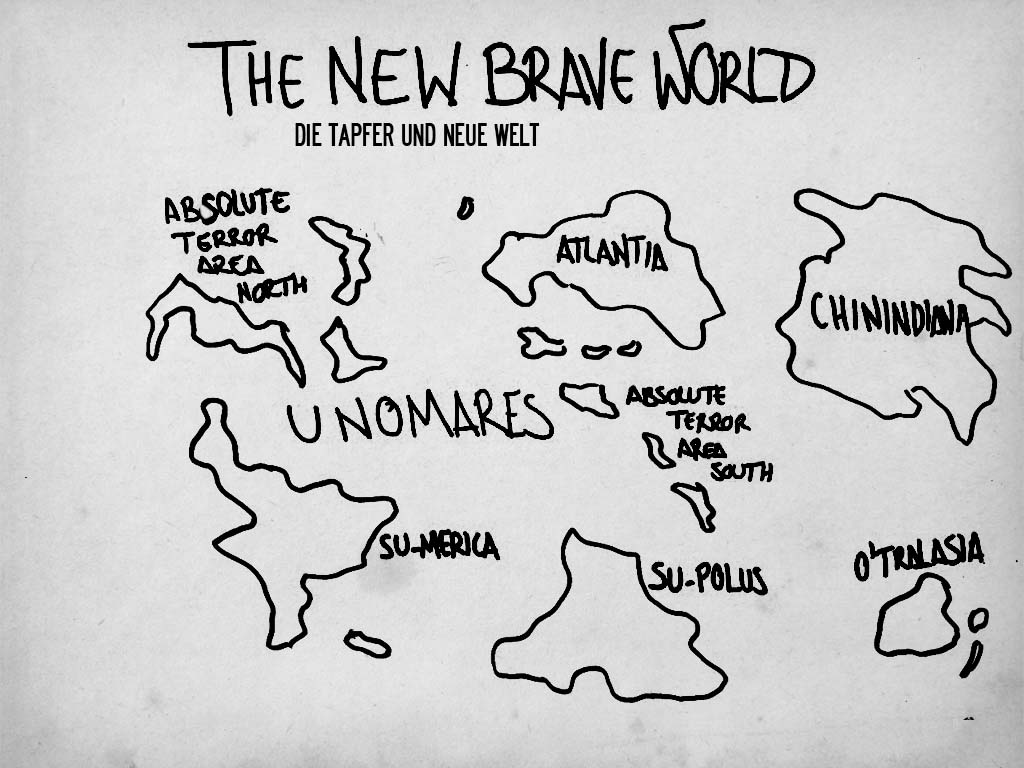 THE NEW BRAVE WORLD
DIE TAPFER UND NEUE WELT
ABSOLUTE
TERROR
AREA
NORTH
ATLANTIA
CHININDIANA
UNOMARES
ABSOLUTE
TERROR
AREA
SOUTH
SU-MERICA
SU-POLUS
O'TRALASIA